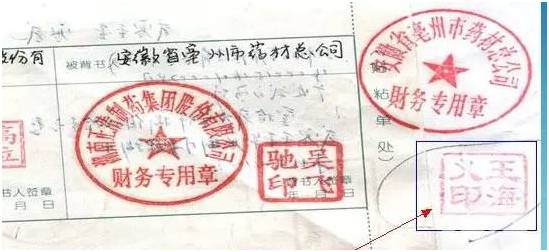 份有
被背书
安徽省亳州市药材总公司
湖南正清制药集团股份有限公司
财务专用章
安徽省亳州市药材总公司
财务专用章
粘单处)
高
立
吴
驰印
王海
印
书人签章
年 月 日
书人签章
年 月 日